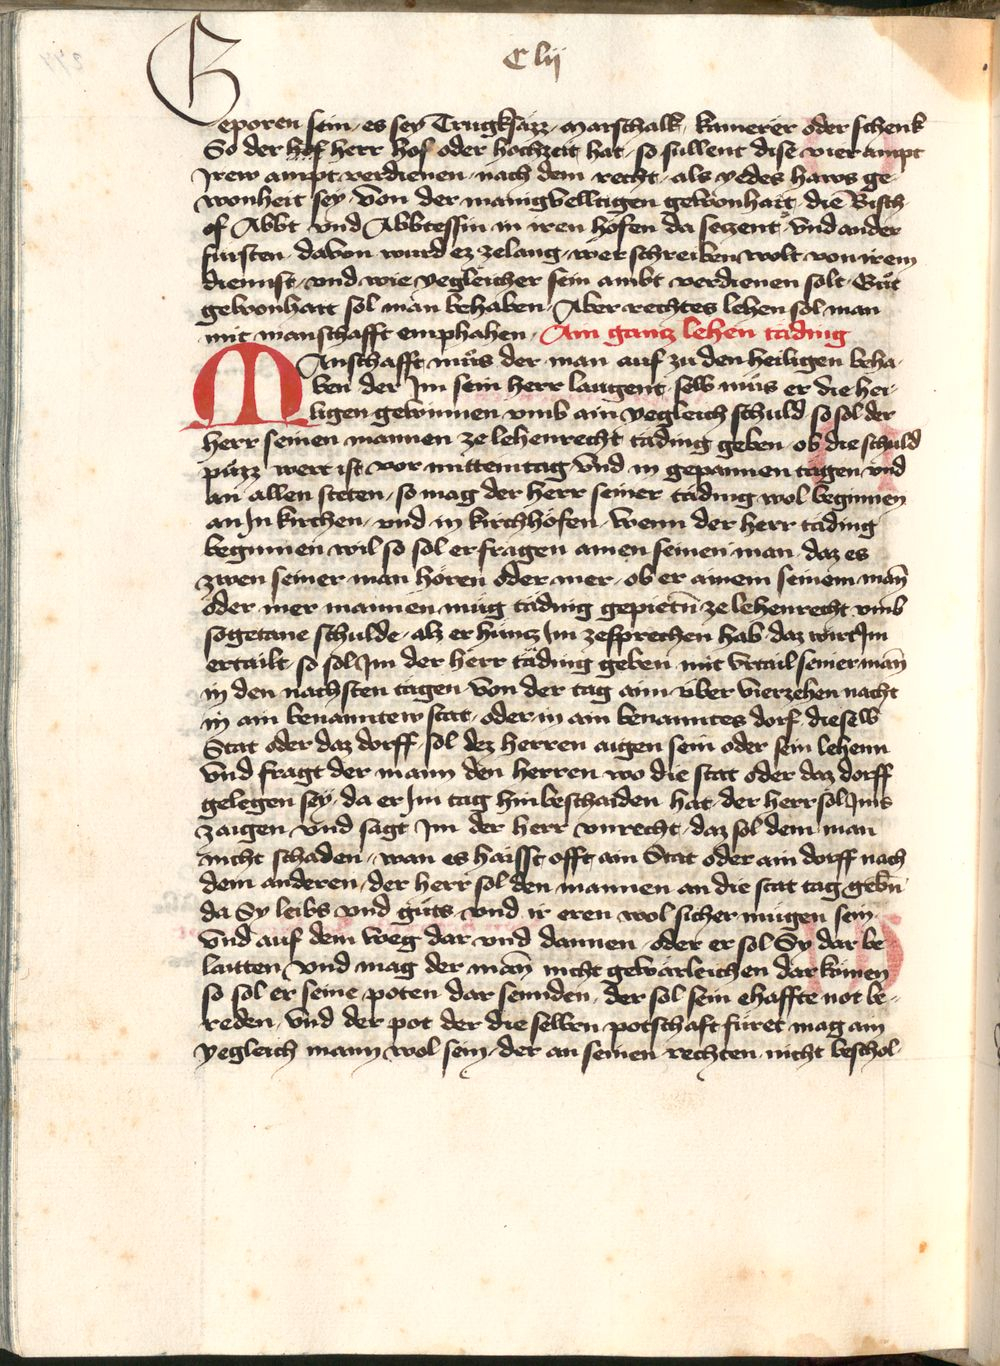 C lij
Geporen sein, es sey Trugksäzz, Marschalk, kamerer oder schenk
So der hof herr hof oder hochzeit hat, so sullent dise vier ampt
Irew ampt verdienen, nach dem recht, als yedes haws ge-
wonheit sey, von der manigvelltigen gewonhait, die Bisch-
of Abbt, vnd Abbtessin, in iren höfen da seczent, vnd ander
fursten, davon wurd ez zelang, wer schreiben wolt von irem
diennst, vnd wie yegleicher sein ambt verdienen solt, Gůt
gewonhait sol man behaben, Aber rechtes lehen sol man
mit manschafft emphahen, Ain gancz lehen täding
Manschafft můs der man auf zu den heiligen beha-
ben der Im sein herr laugent, selb můs er die hei-
ligen gewinnen vmb ain yegleich schuld, so sol der
herr seinen mannen ze lehenrecht täding geben, ob die schuld
půzz werr ist, vor mittemtag vnd in gepannen tagen vnd
an allen steten, so mag der herr seiner täding wol beginnen
an In kirchen, vnd in kirchhöfen, Wenn der herr täding
beginnen wil so sol er fragen ainen seinen man, daz es
zwen seiner man hören oder mer, ob er ainem seinem mañ
oder mer mannen müg täding gepietn̄ ze lehenrecht vmb
sogetane schulde, alz er hincz Im zesprechen hab, daz wirt Im
ertailt, so sol Im der herr täding geben mit vrtail seiner mañ
in den nachsten tagen von der tag ainn über vierzehen nacht
in ain benanntew stat, oder in ain benanntes dorf, dieselb
Stat oder daz dorff, sol dez herren aigen sein oder sein lehenn
vnd fragt der mann den herren wo die stat oder daz dorff
gelegen sey, da er Im tag hin beschaiden hat, der herr sol Ims
zaigen vnd sagt Im der herr vnrecht, daz sol dem man
nicht schaden, wan es haisst offt ain Stat oder ain dorff nach
dem anderen, der herr sol den mannen an die stat tag gebn̄
da Sy leibs vnd gůts vnd ir eren wol sicher mügen sein
vnd auf dem weg dar vnd dannen, oder er sol Sy dar be
laitten, vnd mag der mañ nicht gewärleichen dar komen
so sol er seine poten dar sennden, der sol sein ehaffte not be-
reden, vnd der pot der dieselben potschaft füret mag ain
yegleich mann wol sein, der an seinen rechten nicht beschol-